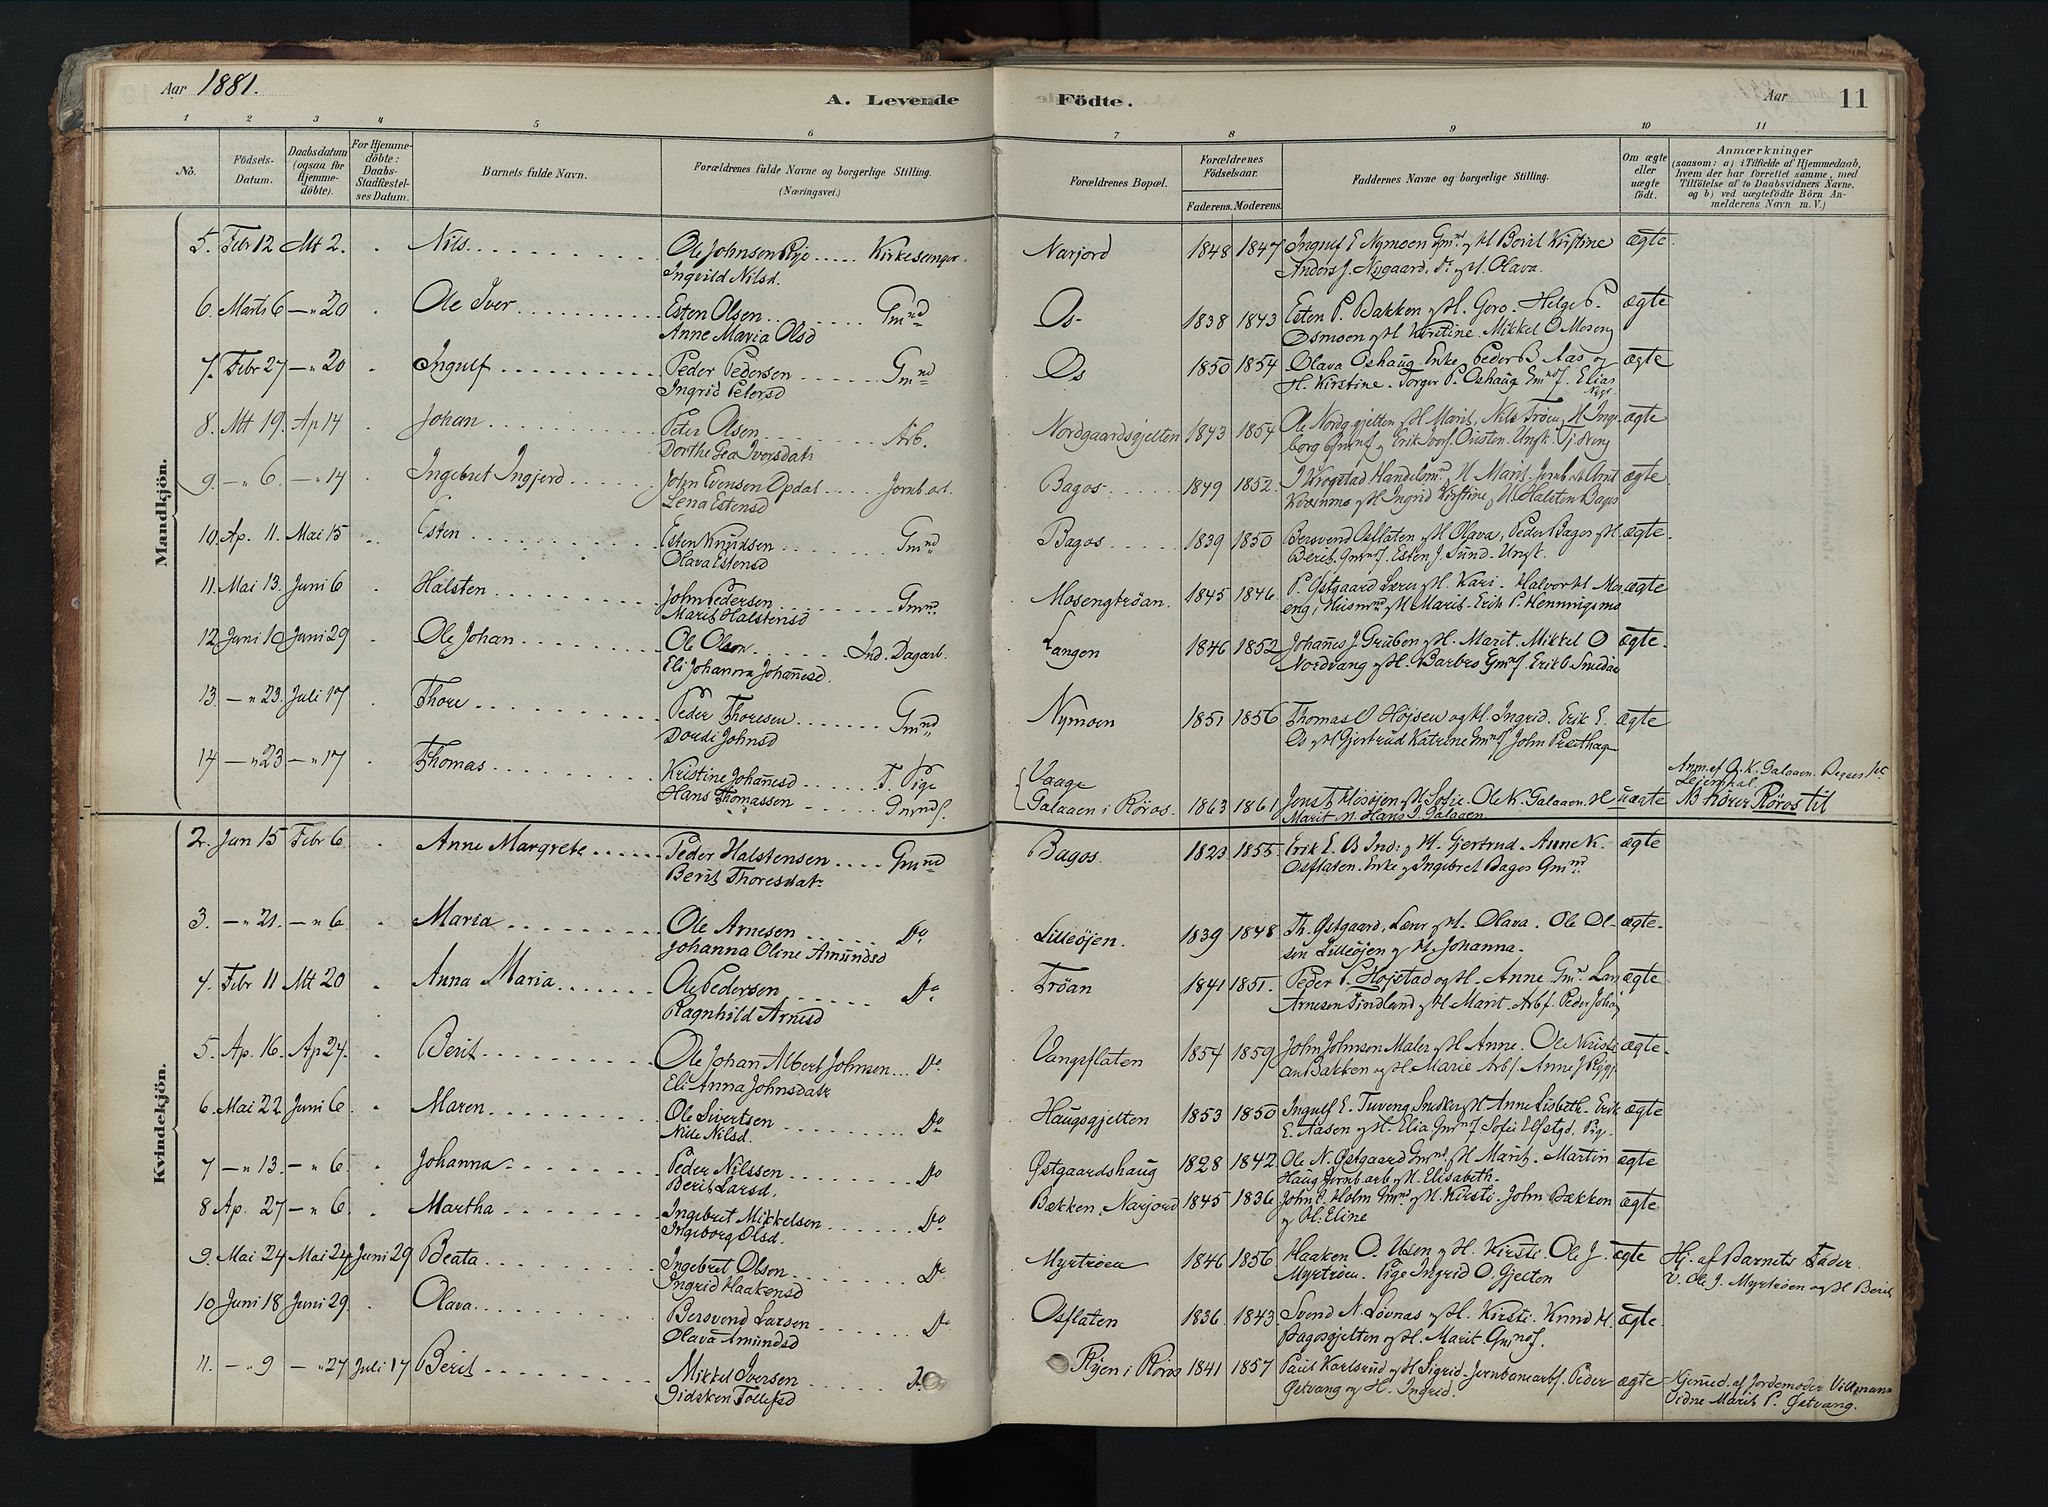 Aar 1881.
A. Levende Födte.
Aar 11
1 2 3 4 5 6 7 8 9 10 11
No.
Födsels-Datum.
Daabsdatum (ogsaa for Hjemme-döbte).
For Hjemme-döbte: Daabs-Stadfæstel-ses Datum.
Barnets fulde Navn.
Forældrenes fulde Navne og borgerlige Stilling. (Næringsvei.)
Forældrenes Bopæl.
Forældrenes Födselsaar.
Faderens. Moderens.
Faddernes Navne og borgerlige Stilling.
Om ægte eller uægte födt.
Anmærkninger
(saasom: a) i Tilfælde af Hjemmedaab,
hvem der har forrettet samme, med
Tilföielse af to Daabsvidners Navne,
og b) ved uægtefödte Börn An-
melderens Navn m. V.)
Mandkjön.
5. Febr 12 Mt 2. Nils Ole Johnsen Rye Kirkesanger. Narjord 1848 1847 Ingulf E Nymoen Gmd og H Berit Kirstine ægte.
Ingvild Nilsd. Anders J. Nygaard, og H. Olava.
6. Marts 6 - " 20 Ole Iver Esten Olsen Gmnd Os 1838 1843 Esten P. Bakken og H. Goro. Helge P. ægte
Anne Maria Olsd Osmoen og H Kirstine. Mikkel O Moseng
7. Febr 27 - " 20 Ingulf Peder Pedersen Gmnd Os 1850 1854 Olava Oshaug Enke, Peder B Aas og ægte
Ingrid Petersd H. Kirstine. Torger P. Oshaug Elias
8. Mt 19. Ap 14 Johan Peter Olsen Arb. Nordgaardsgjelten 1843 1854 Ole Nordg.gjelten og H Marit, Nils Trøen, H Inge ægte
Dorthe Gea Iversdatr borg
9. - " 6. - " 14 Ingebret Ingjerd John Evensen Opdal Jernb arb. Bagos 1849 1852. Krogstad Handelsm. H Marit. ægte
Lena Estensd og H Ingrid Kirstine, Halsten Bagos
10. Ap. 11. Mai 15 Esten Esten Knudsen Gmnd Bagos 1839 1850 Bersvend Osflaten og H Olava, Peder Bagos og H ægte.
Olava Estensd Berit. Esten J. Sund. Ungk.
11. Mai 13. Juni 6 Halsten John Pedersen Gmn. Mosengtrøan. 1845 1846. P. Østgaard Lærer og H. Kari. Halvor H Mos ægte
Marit Halstensd eng, Husm. og H Marit. Erik P. Henningsmo
12 Juni 10 Juni 29 Ole Johan Ole Olsen Ind. Dagarb. Langen 1846 1852 Johanes J Gruben og H. Marit. Mikkel O ægte.
Eli Johanna Johanesd. Nordvang og H. Barbro Erik O Smedaas
13. - " 23. Juli 17 Thore Peder Thoresen Gmnd Nymoen 1851 1856 Thomas O Højsen og H. Ingrid. Erik E. ægte
Dordi Johnsd Os og H Gjertrud Katrine John Præsthag
14 - " 23 - " 17 Thomas Kristine Johanesd T. Pige Vaage Anm. af O. K. Galaaen.
Hans Thomassen Gmmds. Galaaen i Røros. 1863 1861 og H. Sofie. Ole K. Galaaen. H uægte Lejermaal
Marit N. Hans J. Galaaen. NB hører Røros til
Kvindekjön.
2. Jan 15 Febr 6 Anne Margrete Peder Halstensen Gmnd Bagos. 1823 1855. Erik E. B Ind: og H. Gjertrud. Anne K. ægte
Berit Thoresdatr Osflaten. Enke og Ingebret Bagos Gmnd.
3. - " 21. - " 6 Maria Ole Arnesen Do Lilleøjen. 1839 1848 Th. Østgaard, Lærer og H. Olava. Ole Ol- ægte.
Johanna Oline Amundsd sen Lilleøjen og H Johanna.
4. Febr 11 Mt 20 Anna Maria Ole Pedersen Do Trøan 1841 1851. Peder P. Højstad og H. Anne ægte
Ragnhild Arnesd Arnesen Sindland og H Marit. Arbf. Peder Johan
5. Ap. 16. Ap 24. Berit Ole Johan Albert Johnsen Do Vangsflaten 1854 1859 John Johnsen Maler og H Anne. Ole Kristi ægte.
Eli Anna Johnsdatr an Bakken og H Marie Arbf Anne J
6. Mai 22 Juni 6 Maren Ole Sivertsen Do Haugsgjelten 1853 1850 Ingulf E. Tuveng Snedker og H Anne Lisbeth. Erik ægte
Nille Nilsd. E. Aasen og H. Elia Sofie
7 - " 13. - " 6. Johanna Peder Nilssen Do Østgaardshaug 1828 1842 Ole N. Østgaard Gmd og H Marit. Martin ægte
Berit Larsd. Haug Jernb arb og H. Elisabeth.
8 Ap. 27 - " 6. Martha Ingebret Mikkelsen Do Bækken, Narjord 1845 1836 John E. Holm Gmd og H. Kirsti. John Bækken ægte
Ingeborg Olsd. og H: Eline
9. Mai 24 Mai 24 Juni 29 Beata Ingebret Olsen Do Myrtrøen 1846 1856 Haaken O. Utsen og H. Kirsti. Ole J. ægte Hj. af Barnets Fader.
Ingrid Haakensd Myrtrøen. Pige Ingrid O. Gjelten V. Ole J. Myrtrøen og H Berit
10 Juni 18 Juni 29. Olava Bersvend Larsen Do Osflaten 1836 1843 Svend N. Løvnas og H. Kirsti. Knud H. ægte.
Olava Amundsd Bagosgjelten og H. Marit
11. - " 9 - " 27 Juli 17 Berit Mikkel Iversen Do Ryen i Røros 1841 1857 Paul Karlsrud og H Sigrid. Jernbanearbf. Peder ægte Hjemmed. af Jordemoder Villmann
Sidsken Tollefsd Østvang og H. Ingrid. Vidne Marit P. Østvang.